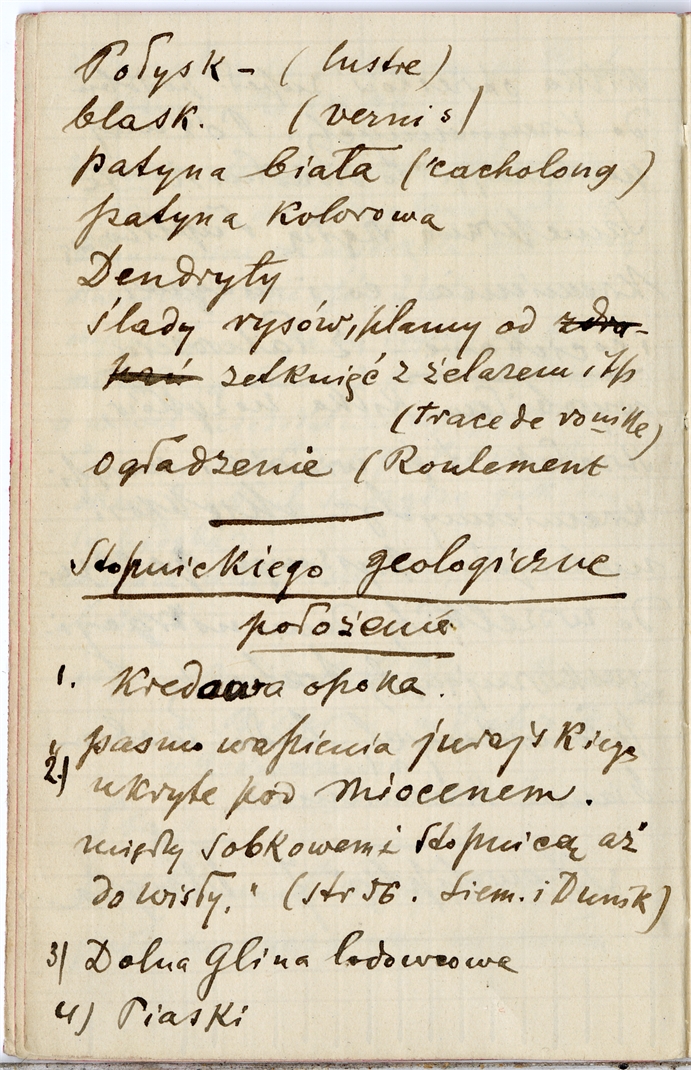 Połysk – (lustre)
blask. (vernis)
patyna biała (cacholong)
patyna kolorowa
Dendryty
ślady rysów, plamy od zdra-
pań zetknięć z żelazem i tp
(trace de rouille)
ogładzenie (Roulement
Stopnickiego geologiczne
położenie
1. Kredowa opoka.
2.) „pasmo wapienia jurajskiego
ukryte pod Miocenem.
między Sobkowem i Stopnicą aż
do Wisły." (str 56. Siem. i Dunik)
3) Dolna Glina lodowcowa
4) Piaski